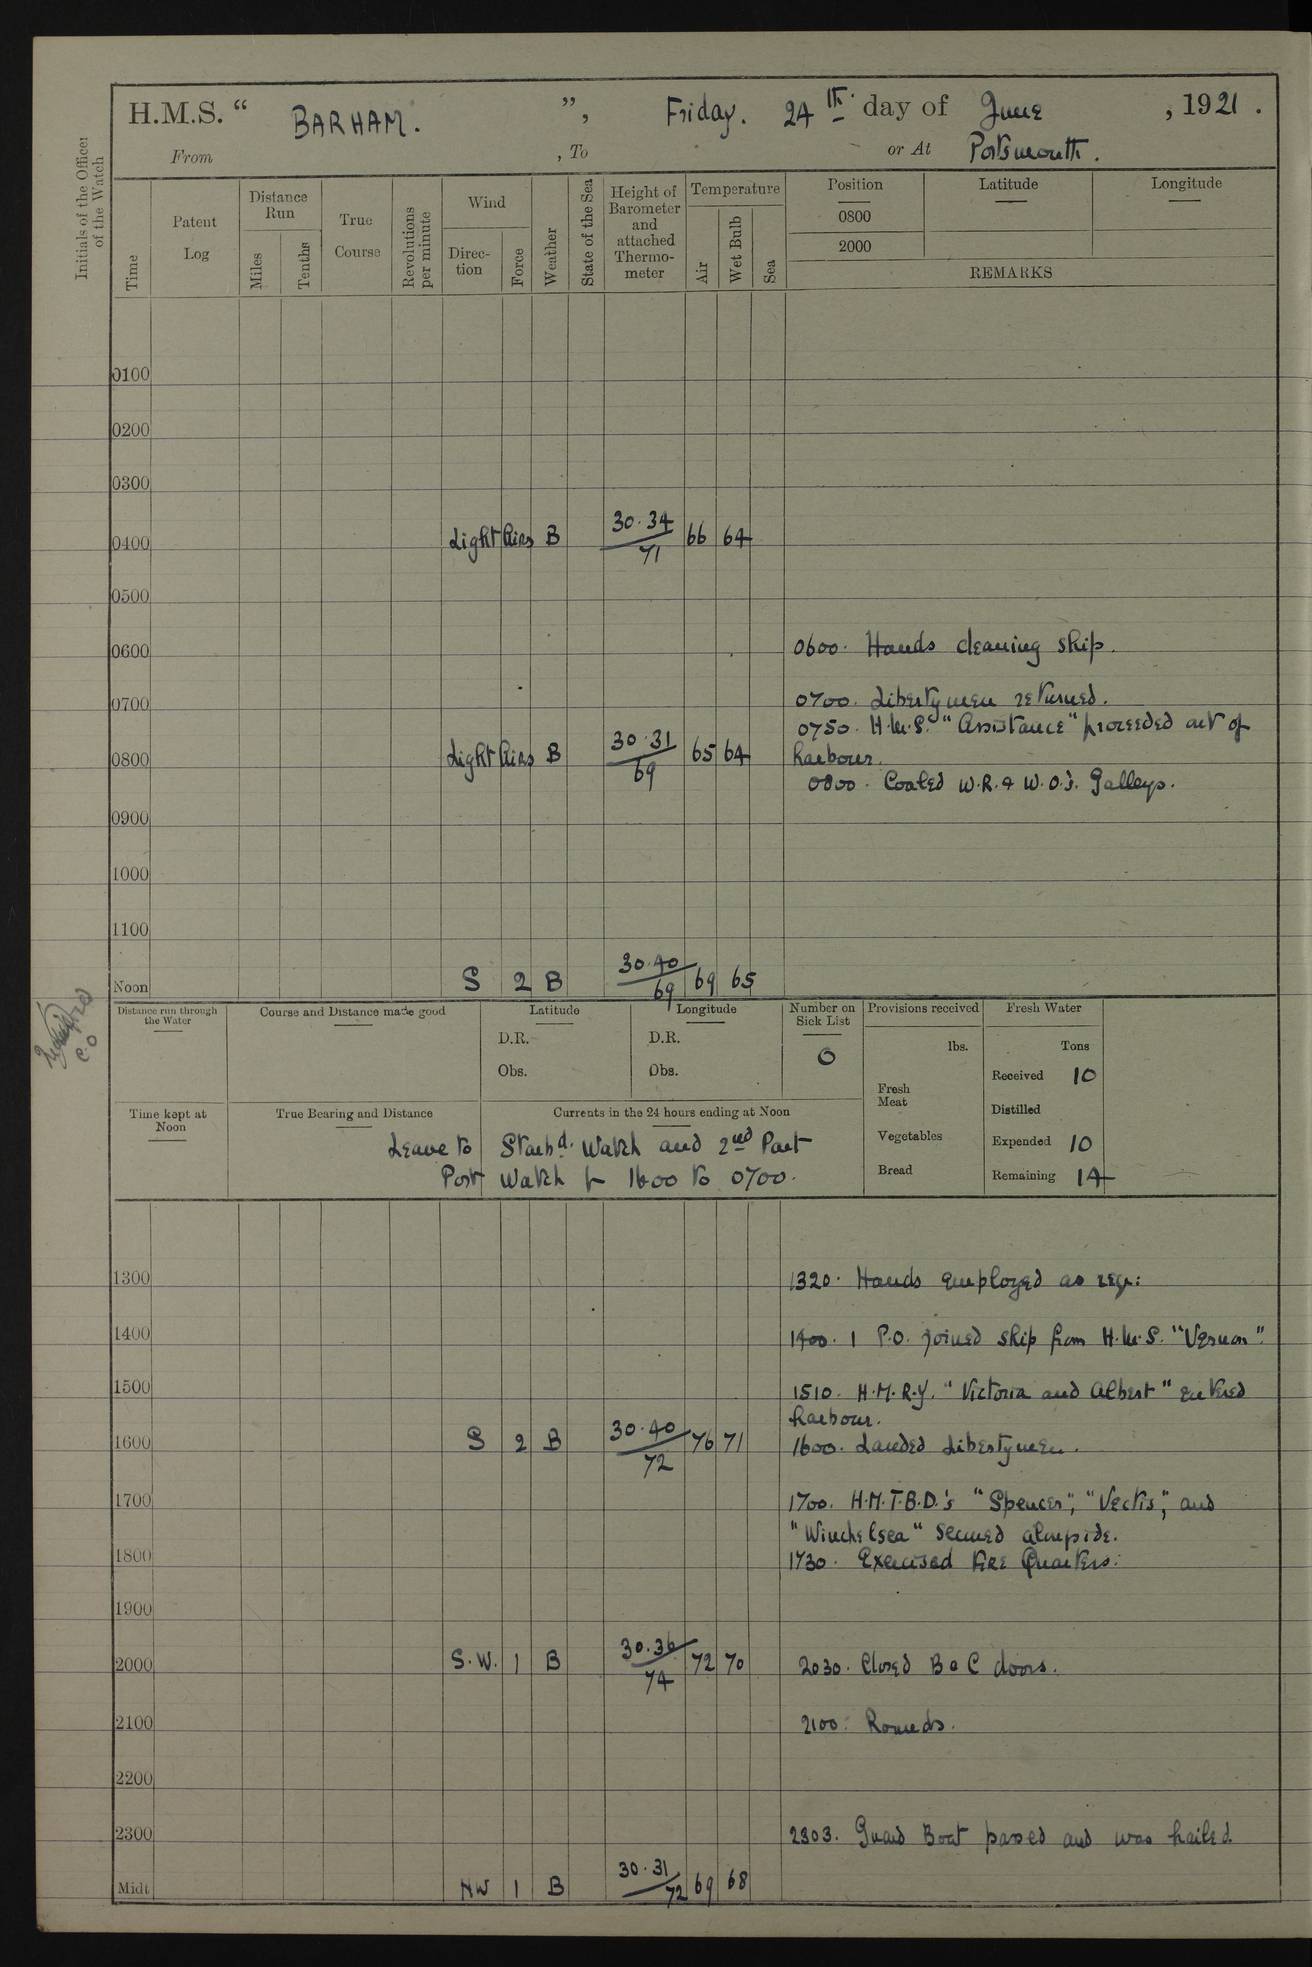 H.M.S. “ BARHAM. ”, Friday. 24th day of June , 1921 .
From , To or At Portsmouth.
Initials of the Officer of the Watch
Time
Patent Log
Distance Run
Miles
Tenths
True Course
Revolutions per minute
Wind
Direc- tion
Force
Weather
State of the Sea
Height of Barometer and attached Thermo- meter
Temperature
Air
Wet Bulb
Sea
Position Latitude Longitude
0800
2000
REMARKS
0100
0200
0300
0400 Light Airs B 30.34 71 66 64
0500
0600 0600. Hands cleaning ship.
0700 0700. Libertymen returned.
0750. H.M.S. "Assistance" proceeded out of
0800 Light Airs B 30.31 69 65 64 harbour.
0800. Coaled W.R. & W.O's. Galleys.
0900
1000
1100
Noon S 2 B 30.40 69 69 65
Distance run through the Water
Course and Distance made good
Latitude
D.R.
Obs.
Longitude
D.R.
Obs.
Number on Sick List
0
Provisions received
lbs.
Fresh Meat
Vegetables
Bread
Fresh Water
Tons
Received 10
Distilled
Expended 10
Remaining 14
Time kept at Noon
True Bearing and Distance
Currents in the 24 hours ending at Noon
Leave to Starbd. Watch and 2nd Part
Port Watch fr 1600 to 0700.
1300 1320. Hands employed as req:
1400 1400. 1 P.O. joined ship from H.M.S. "Vernon".
1500 1510. H.M.R.Y. "Victoria and Albert" entered
harbour.
1600 S 2 B 30.40 72 76 71 1600. Landed Libertymen.
1700 1700. H.M.T.B.D.'s "Spencer", "Vectis", and
"Winchelsea" secured alongside.
1800 1730. Exercised Fire Quarters.
1900
2000 S.W. 1 B 30.36 74 72 70 2030. Closed B & C doors.
2100 2100. Rounds.
2200
2300 2303. Guard Boat passed and was hailed.
Midt NW 1 B 30.31 72 69 68